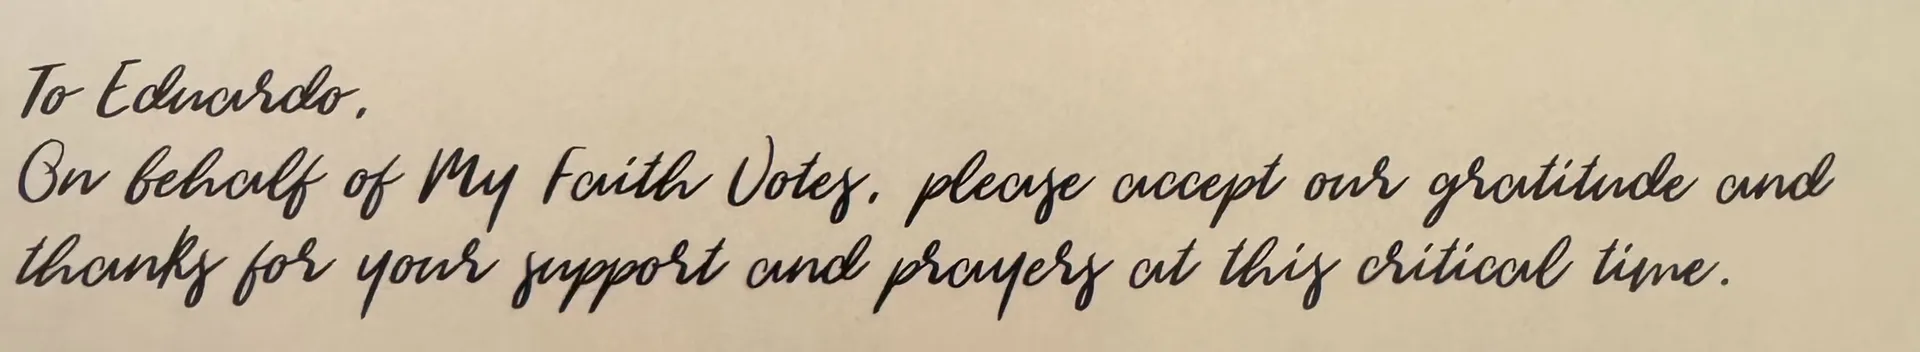 To Eduardo,
On behalf of My Faith Votes, please accept our gratitude and
thanks for your support and prayers at this critical time.